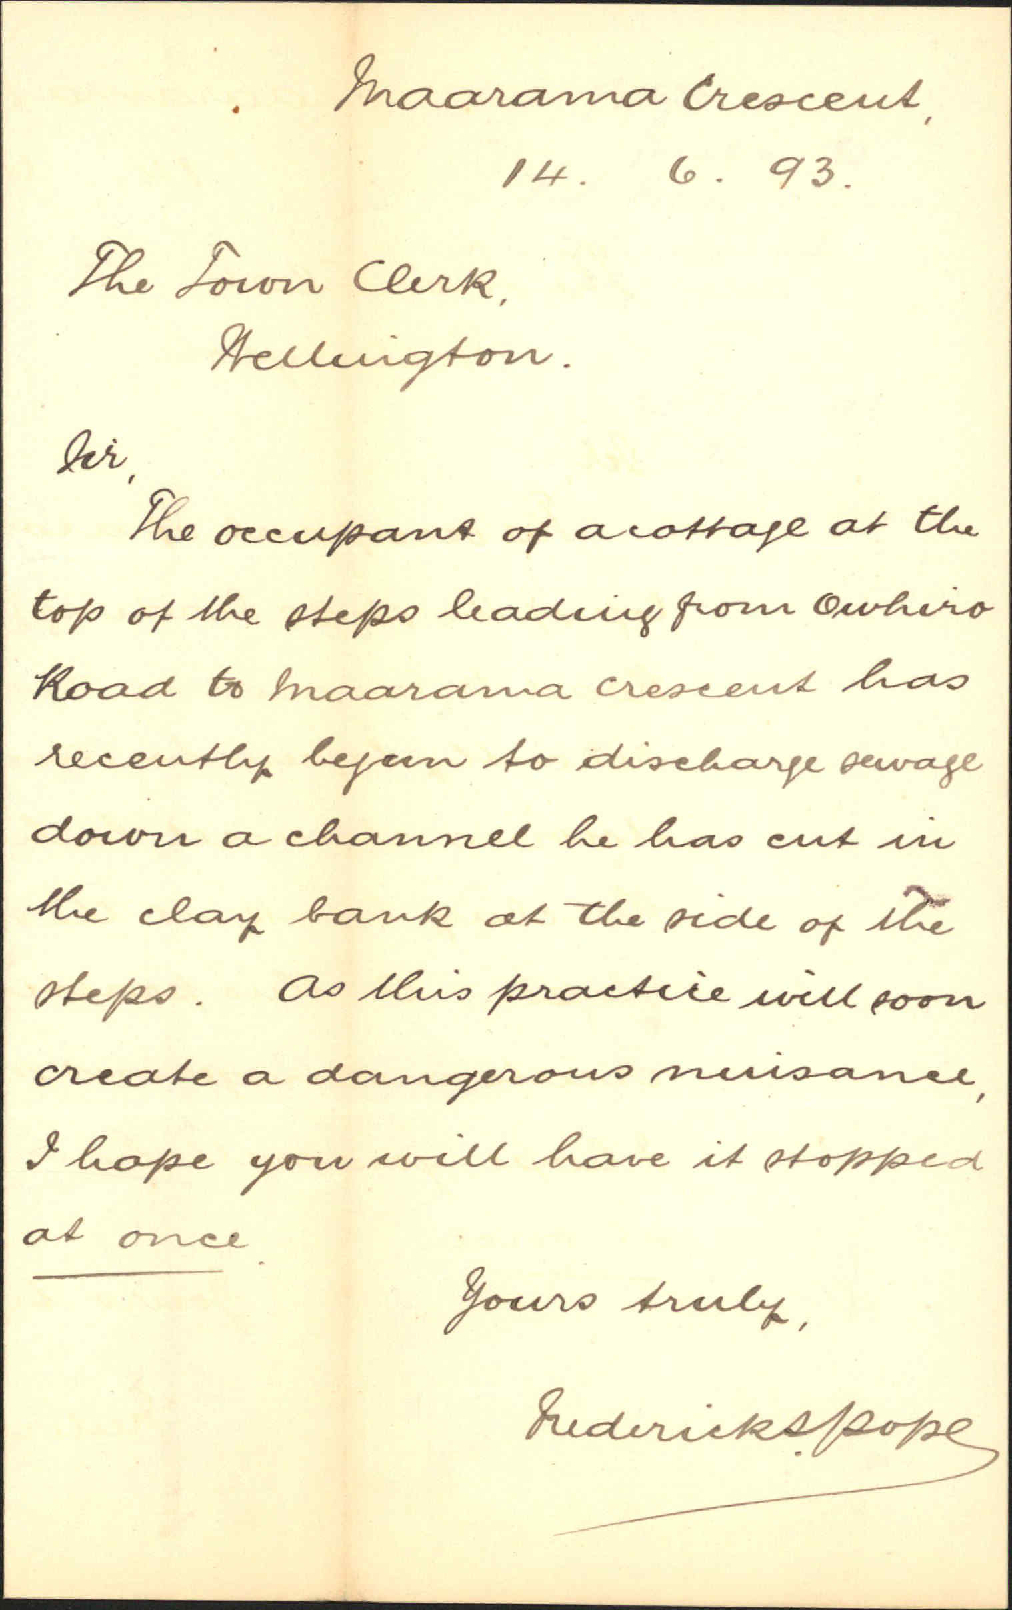 Maarama Crescent,
14. 6. 93.
The Town Clerk,
Wellington.
Sir,
The occupant of a cottage at the
top of the steps leading from Owhiro
Road to Maarama Crescent has
recently begun to discharge sewage
down a channel he has cut in
the clay bank at the side of the
steps. As this practice will soon
create a dangerous nuisance,
I hope you will have it stopped
at once.
Yours truly,
Frederick S. Pope